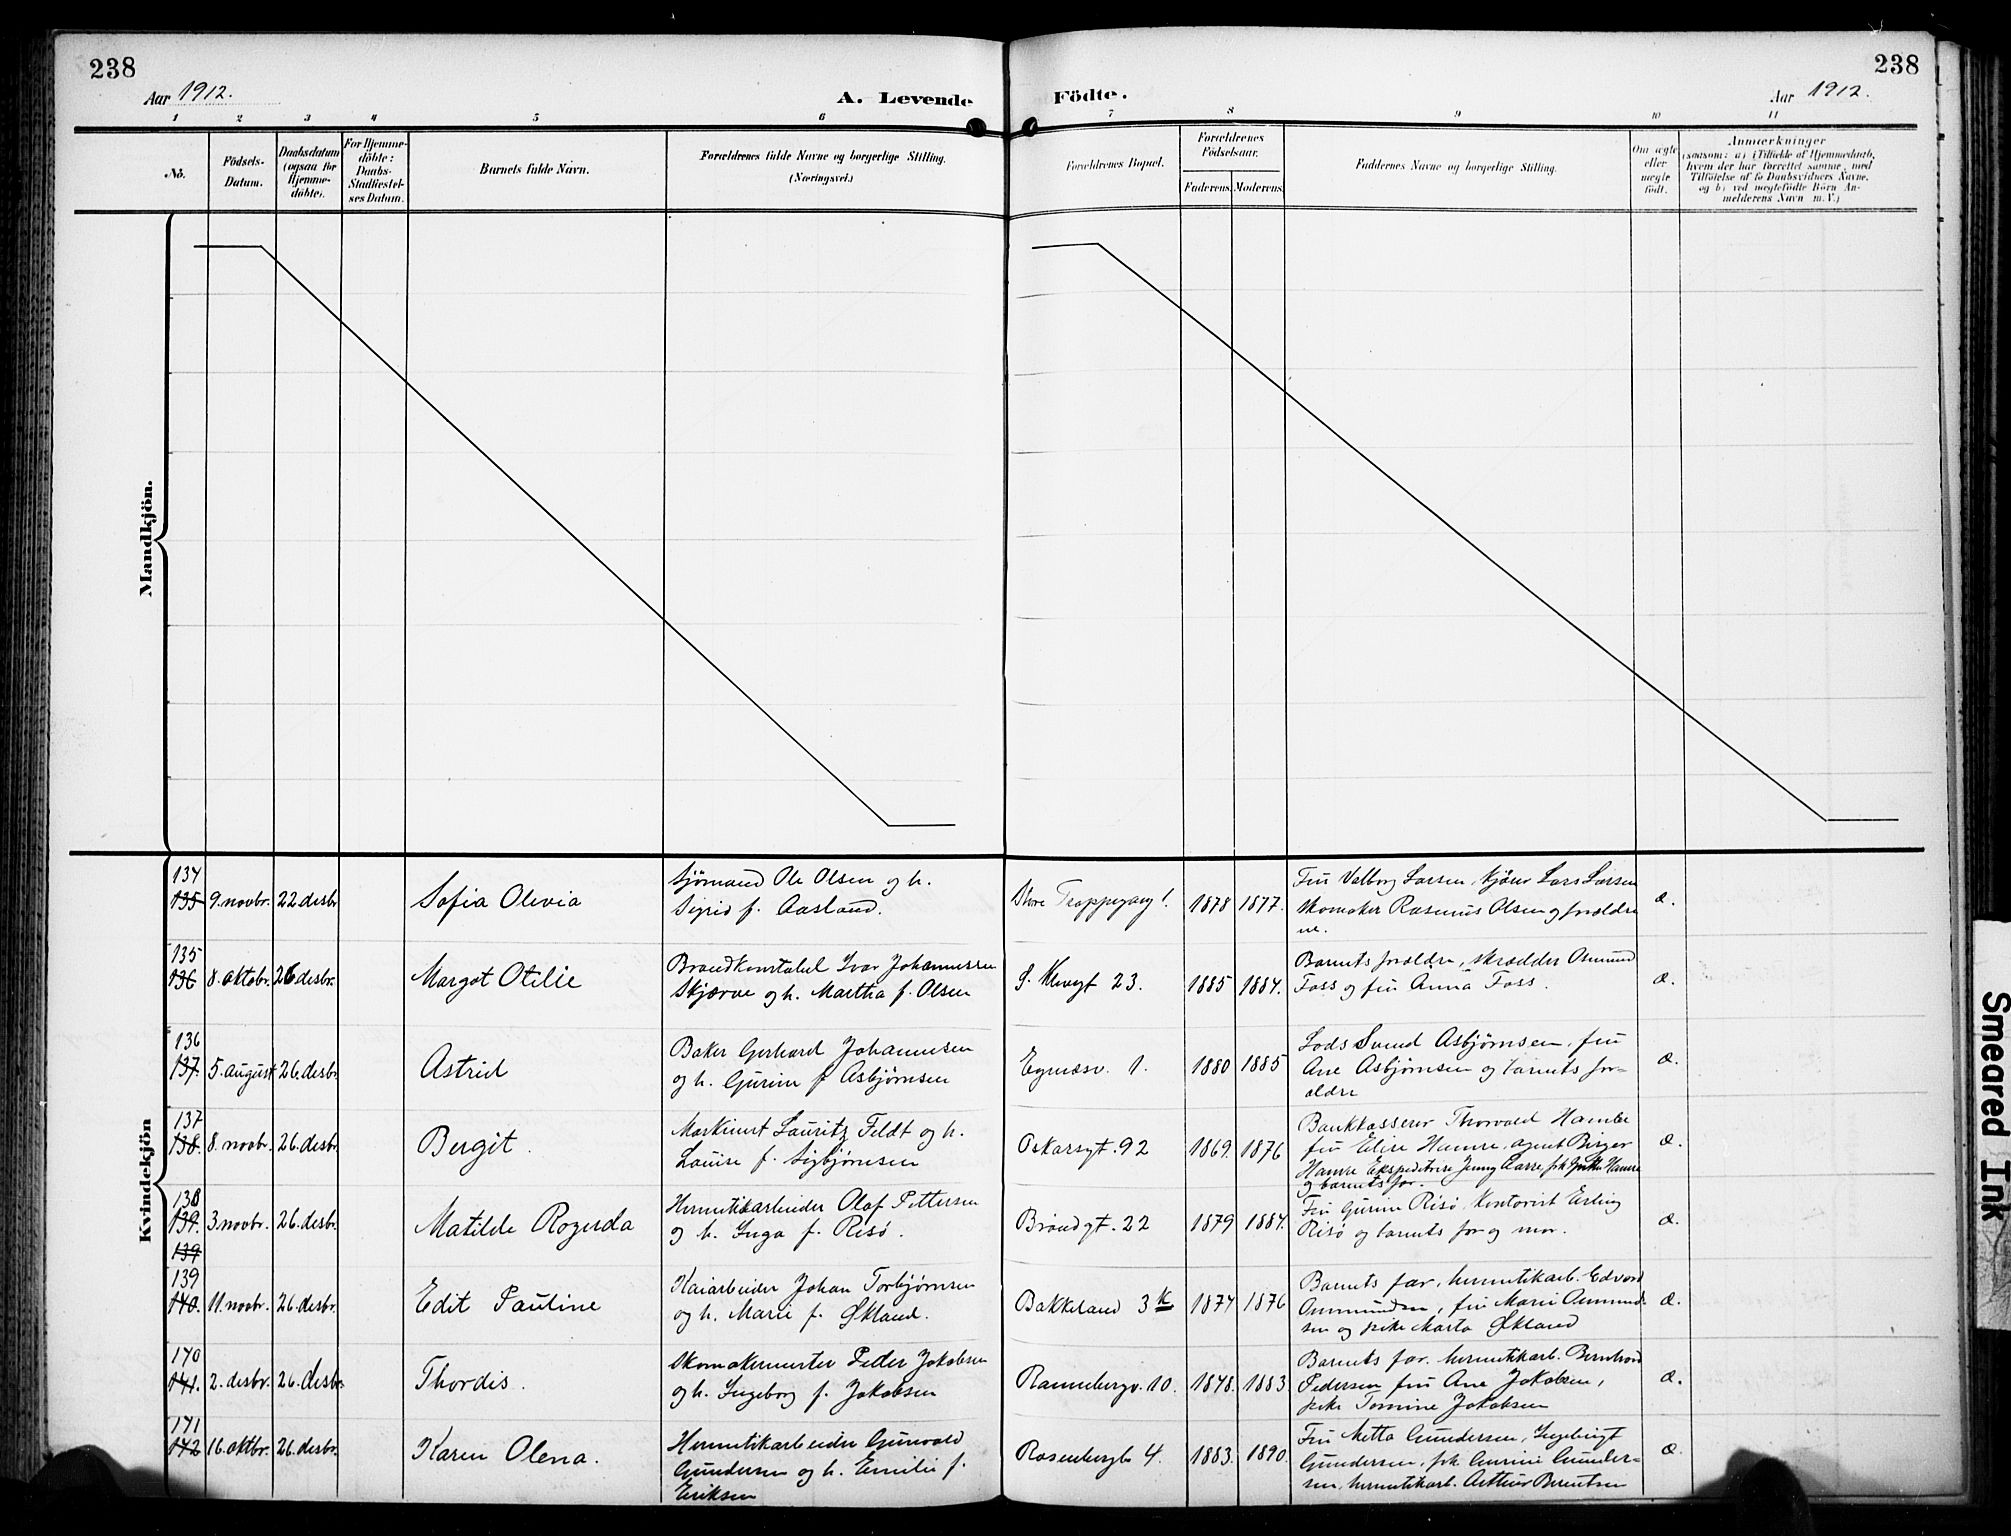 238
238
Aar 1912.
A. Levende
Födte.
Aar 1912.
1 2 3 4 5 6 7 8 9 10 11
No.
Födsels-
Datum.
Daabsdatum
(ogsaa for
Hjemme-
döbte).
For Hjemme-
döbte:
Daabs-
Stadfæstel-
ses Datum.
Barnets fulde Navn.
Forældrenes fulde Navne og borgerlige Stilling.
(Næringsvei.)
Forældrenes Bopæl.
Forældrenes
Födselsaar.
Faderens.
Moderens.
Faddernes Navne og borgerlige Stilling.
Om ægte
eller
uægte
födt.
Anmærkninger
(saasom: a) i Tilfælde af Hjemmedaab,
hvem der har forrettet samme, med
Tilföielse af to Daabsvidners Navne,
og b) ved uægtefödte Börn An-
melderens Navn m. V.)
Mandkjön.
Kvindekjön
134
135 9. novbr. 22 desbr
Sofia Olevia
Sjømand Ole Olsen og h.
Sigrid f. Aasland.
Store Trappegang 1.
1878 1877.
Fru Valborg Larsen, Lars Larsen
skomaker Rasmus Olsen og forældre
ne.
æ.
135
136 8. oktobr. 26 desbr.
Margot Otilie
Brandkonstabel Ivar Johannessen
Skjærve og h. Martha f. Olsen
23.
1885 1884.
Barnets forældre, skrædder Osmund
Foss og fru Anna Foss.
æ.
136
137. 5. august 26. desbr.
Astrid
Baker Gerhard Johannesen
og h. Gurine f. Asbjørnsen
Egenæsv. 1.
1880 1885
Lods Svend Asbjørnsen, fru
Ane Asbjørnsen og barnets for-
ældre
æ.
137
138. 8. novbr. 26. desbr.
Bergit.
Maskinist Lauritz Feldt og h.
Louise f. Sigbjørnsen
Oskarsgt. 92
1869. 1876
Bankkasserer Thorvald Hamre
fru Elise Hamre, agent Birger
Hamre Ekspeditrise Jenny Aarre, frk Hamre
og barnets far.
æ.
138
139. 3. novbr. 26. desbr.
139
Matilde Rogerda
Hermetikarbeider Olaf Pettersen
og h. Inga f. Risø.
Brandgt. 22
1879 1884.
Fru Gurine Risø, kontorist Erling
Risø og barnets far og mor.
æ.
139
140. 11. novbr. 26. desbr.
Edit Pauline
Kaiarbeider Johan Torbjørnsen
og h. Marie f. Økland.
Bakkeland 3 K
1874 1876
Barnets far, hermetikarb. Edvard
Ommundsen, fru Marie Ommund-
sen og pike Marta Økland
æ.
140
141. 2. desbr. 26. desbr.
Thordis.
Skomakermester Peder Jakobsen
og h. Ingeborg f. Jakobsen
Rannebergv. 10.
1878. 1883
Barnets far, hermetikarb. Bernhard
Pedersen fru Ane Jakobsen,
pike Tomine Jakobsen
æ.
141
142 16. oktbr. 26. desbr.
Karen Olena.
Hermetikarbeider Gunvald
Gundersen og h. Emilie f.
Eriksen
Rosenberggt 4.
1883. 1890.
Fru Metta Gundersen, Ingebrigt
Gundersen, frk. Gurine Gunder-
sen, hermetikarb. Arthur Berentsen
æ.
Smeared Ink